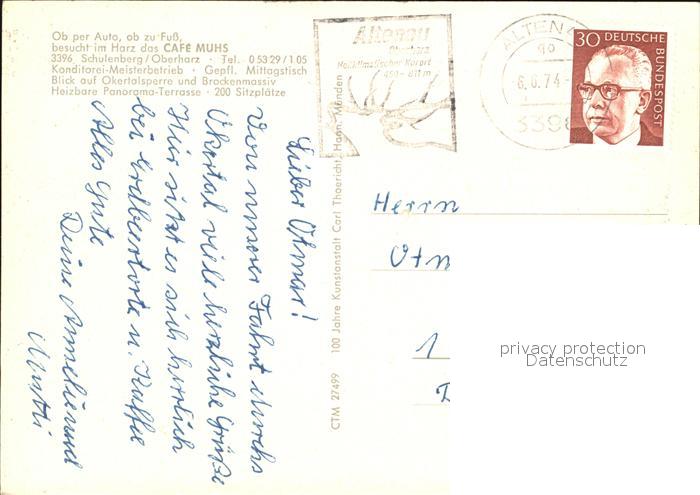 Ob per Auto, ob zu Fuß,
besucht im Harz das CAFÉ MUHS
3396 Schulenberg/Oberharz · Tel. 0 53 29/1 05
Konditorei-Meisterbetrieb · Gepfl. Mittagstisch
Blick auf Okertalsperre und Brockenmassiv
Heizbare Panorama-Terrasse · 200 Sitzplätze
Altenau
Oberharz
Heilklimatischer Kurort
450 - 811 m
ALTENA
6.6.74
3396
30 DEUTSCHE
BUNDESPOST
Lieber Otmar!
Von unserer Fahrt durchs
Okertal viele herzliche Grüße
Hier sitzt es sich herrlich
bei Erdbeertorte u. Kaffee
Alles Gute
Deine Annelie und
Mutti
CTM 27499 100 Jahre Kunstanstalt Carl Thoericht, Hann. Münden
Herrn
Otm
1
privacy protection
Datenschutz